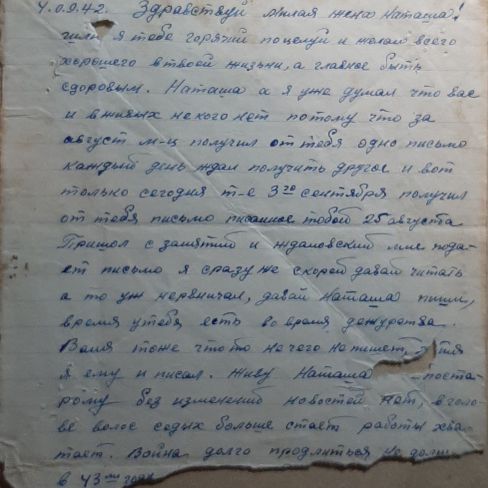 4.0.9.42. Здравствуй милая жена Наташа!
шлю я тебе горячий поцелуй и желаю всего
хорошего в твоей жизни, а главное быть
здоровым. Наташа а я уже думал что вас
и в живых не кого нет потому что за
август м-ц получил от тебя одно письмо
каждый день ждал получить другое и вот
только сегодня т-е 3го сентября получил
от тебя письмо писанное тобой 25 августа
Пришол с занятий и ждановский мне пода-
ет письмо я сразу же скорей давай читать
а то уж нервничал, давай Наташа пиши,
время у тебя есть во время дежурства.
Валя тоже что то не чего не пишет,
я ему и писал. Живу Наташа поста-
рому без изменений новостей нет, в голо-
ве волос седых больше стает работы хва-
тает. Война долго продлиться не
в 43м году